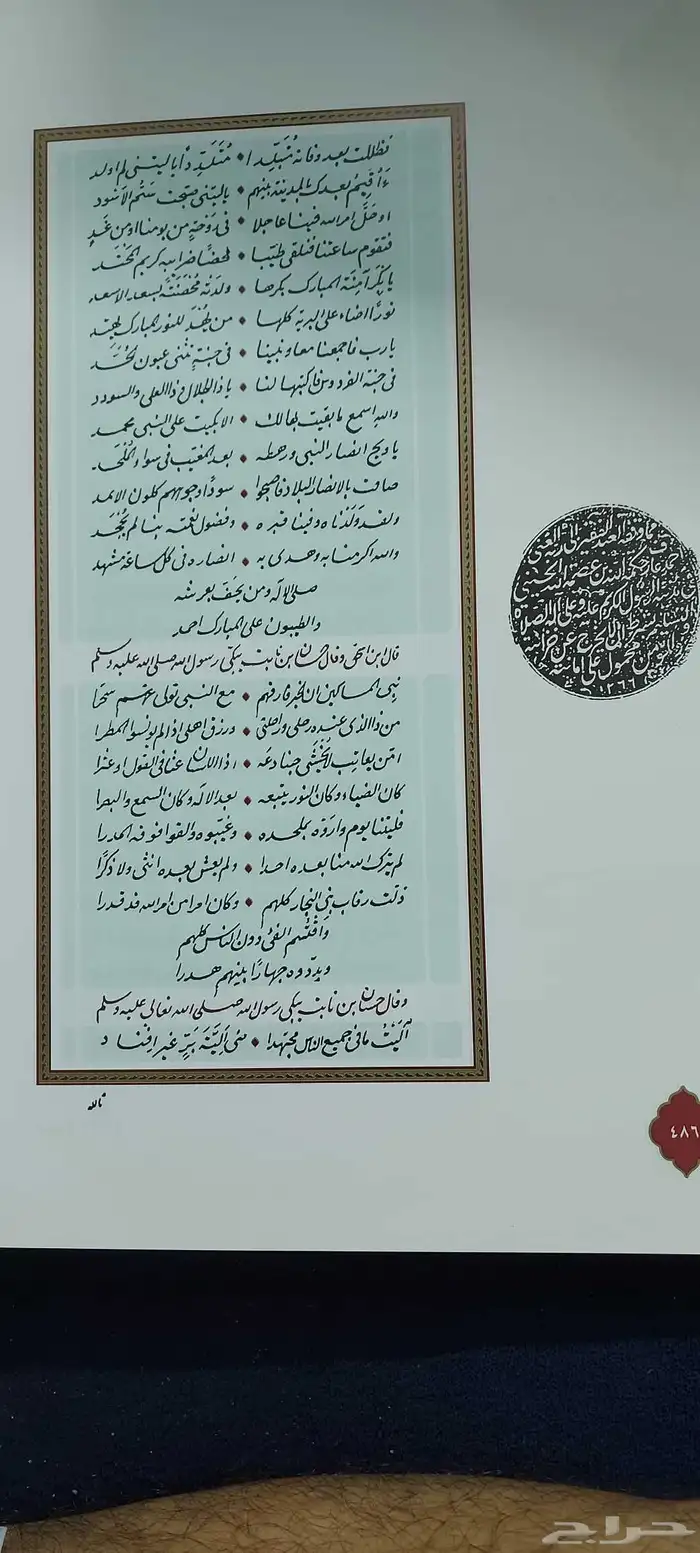 فظللت بعد وفاته متبلدا • متلددا يا ليتني لم اولد
ءاقيم بعدك بالمدينة بينهم • يا ليتني صبحت سم الاسود
او حل امر الله فينا عاجلا • في روحة من يومنا او من غد
فتقوم ساعتنا فنلقى طيبا • محضا ضرايبه كريم المحتد
يا بكر آمنة المبارك بكرها • ولدته محصنة بسعد الاسعد
نورا اضاء على البرية كلها • من يهد للنور المبارك يهتد
يا رب فاجمعنا معا ونبينا • في جنة تثنى عيون الحسد
في جنة الفردوس فاكتبها لنا • يا ذا الجلال وذا العلى والسودد
والله اسمع ما بقيت بهالك • الا بكيت على النبي محمد
يا ويح انصار النبي ورهطه • بعد المغيب في سواء الملحد
ضاقت بالانصار البلاد فاصبحوا • سودا وجوههم كلون الاثمد
ولقد ولدناه وفينا قبره • وفضول نعمته بنا لم تجحد
والله اكرمنا به وهدى به • انصاره في كل ساعة مشهد
صلى الاله ومن يحف بعرشه
والطيبون على المبارك احمد
قال ابن اسحق وقال حسان ابن ثابت يبكي رسول الله صلى الله عليه وسلم
نبي المساكين ان الخير فارقهم • مع النبي تولى عنهم سحرا
من ذا الذي عنده رحلي وراحلتي • ورزق اهلي اذا لم يونسوا المطرا
ام من يعاتب لا يخشى جنادعه • اذا اللسان عتا في القول او عثرا
كان الضياء وكان النور يتبعه • بعد الاله وكان السمع والبصرا
فليتنا يوم واروه بملحده • وغيبوه والقوا فوقه المدرا
لم يترك الله منا بعده احدا • ولم يعش بعده انثى ولا ذكرا
ذلت رقاب بني النجار كلهم • وكان امرا من امر الله قد قدرا
واقتسم الفئ دون الناس كلهم
وبددوه جهارا بينهم هدرا
وقال حسان بن ثابت يبكي رسول الله صلى الله تعالى عليه وسلم
آليت ما في جميع الناس مجتهدا • مني الية بر غير افناد
تالله
٤٨٦
حراج